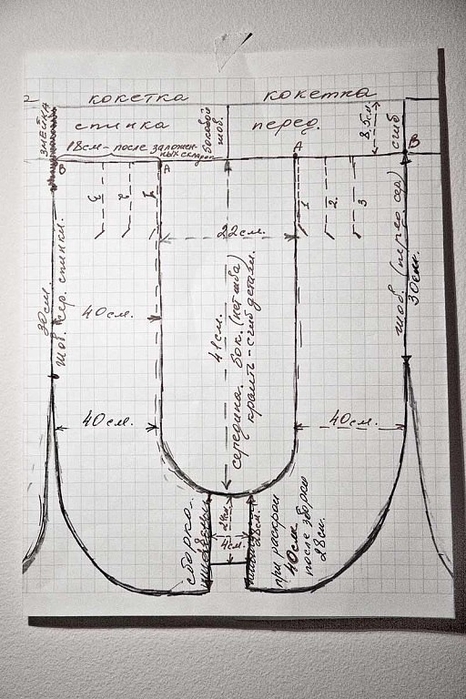 кокетка
кокетка
2
змейка
спинка
боковой
шов.
перед.
8,5см
сгиб
18см - после заложен-
ных складок
В
А
А
В
3
2
1
1
2
3
22см.
30см.
шов. сер. спинки.
40см.
41см.
середина. бок. (нет шва)
кроить - сгиб детали.
шов. (перед сер)
30см.
40см.
40см.
сборка.
28см.
4см.
28см.
при раскрое
40см
после сборки
28см.